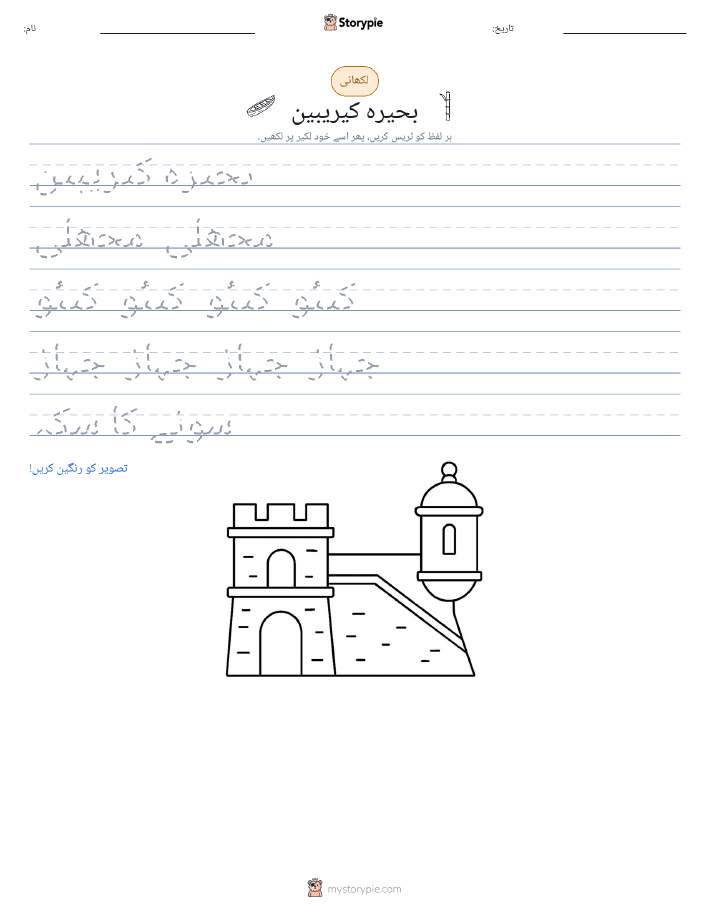 نام:
Storypie
تاریخ:
لکھائی
بحیرہ کیریبین
ہر لفظ کو ٹریس کریں، پھر اسے خود لکیر پر لکھیں۔
بحیرہ کیریبین
مچھلی مچھلی
کینو کینو کینو کینو
جہاز جہاز جہاز جہاز
سونے کا سکہ
تصویر کو رنگین کریں!
mystorypie.com